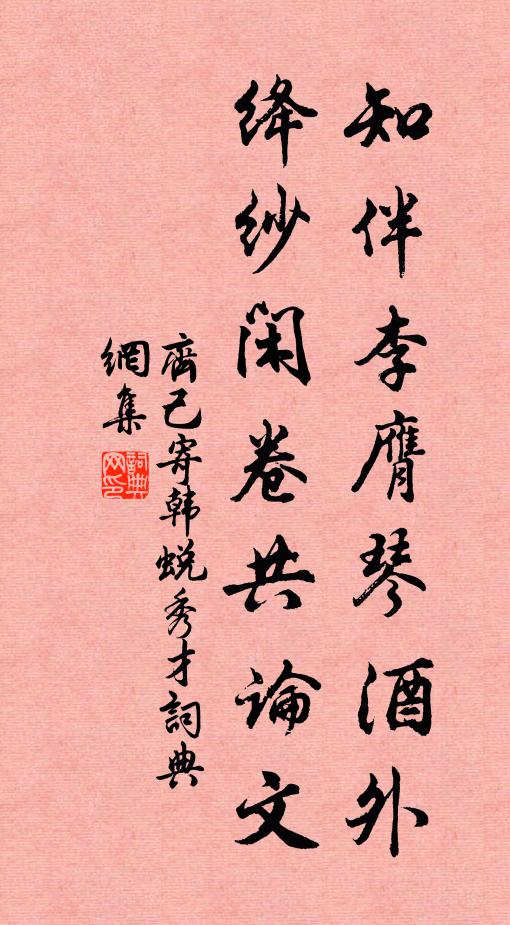 知伴李膺琴酒外
绛纱闲卷共论文
齊己寄韩蜕秀才詞典
網集
詞典網印